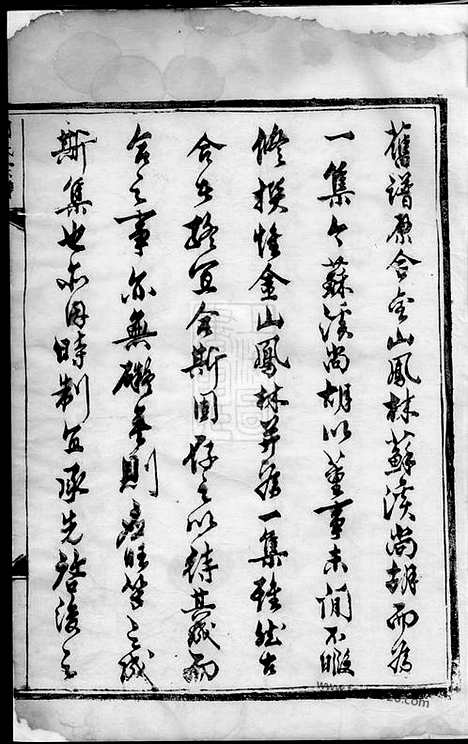 舊譜原合金山鳳林蘇溪尚胡而為
一集今蘇溪尚胡以董事未閒不暇
修換惟金山鳳林并為一集雖然古
合今離宜舍斯固存之以待其成而
合之事亦無礙其則應時等之成
斯集也亦因時制宜承先啟後之